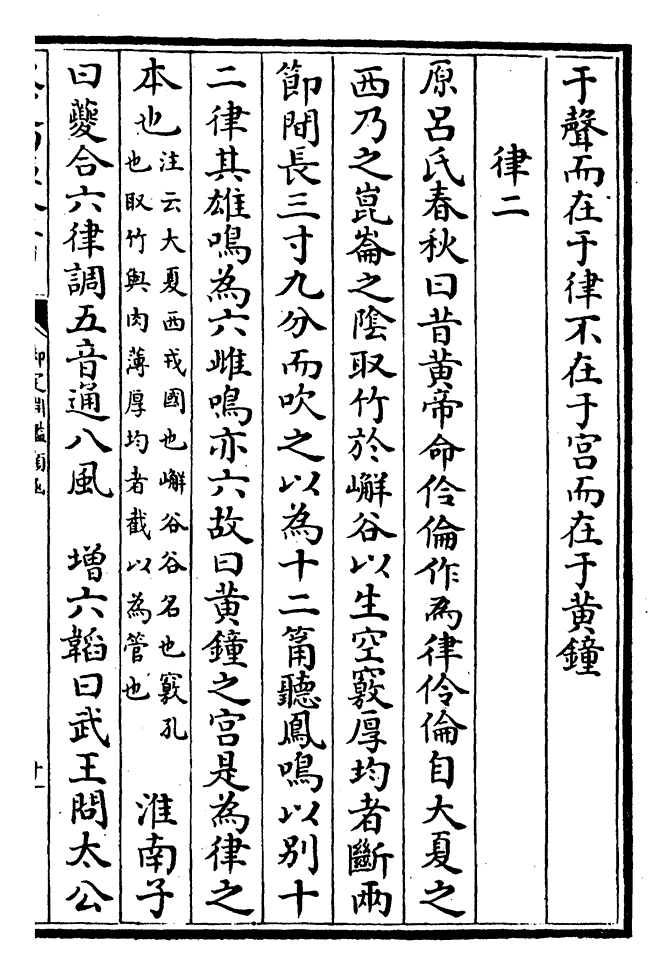 于聲而在于律不在于宮而在于黃鐘
律二
原呂氏春秋曰昔黃帝命伶倫作為律伶倫自大夏之
西乃之崑崙之陰取竹於嶰谷以生空竅厚均者斷兩
節間長三寸九分而吹之以為十二筩聽鳳鳴以別十
二律其雄鳴為六雌鳴亦六故曰黃鐘之宮是為律之
本也注云大夏西戎國也嶰谷谷名也竅孔
也取竹與肉薄厚均者截以為管也
淮南子
曰夔合六律調五音通八風　增六韜曰武王問太公